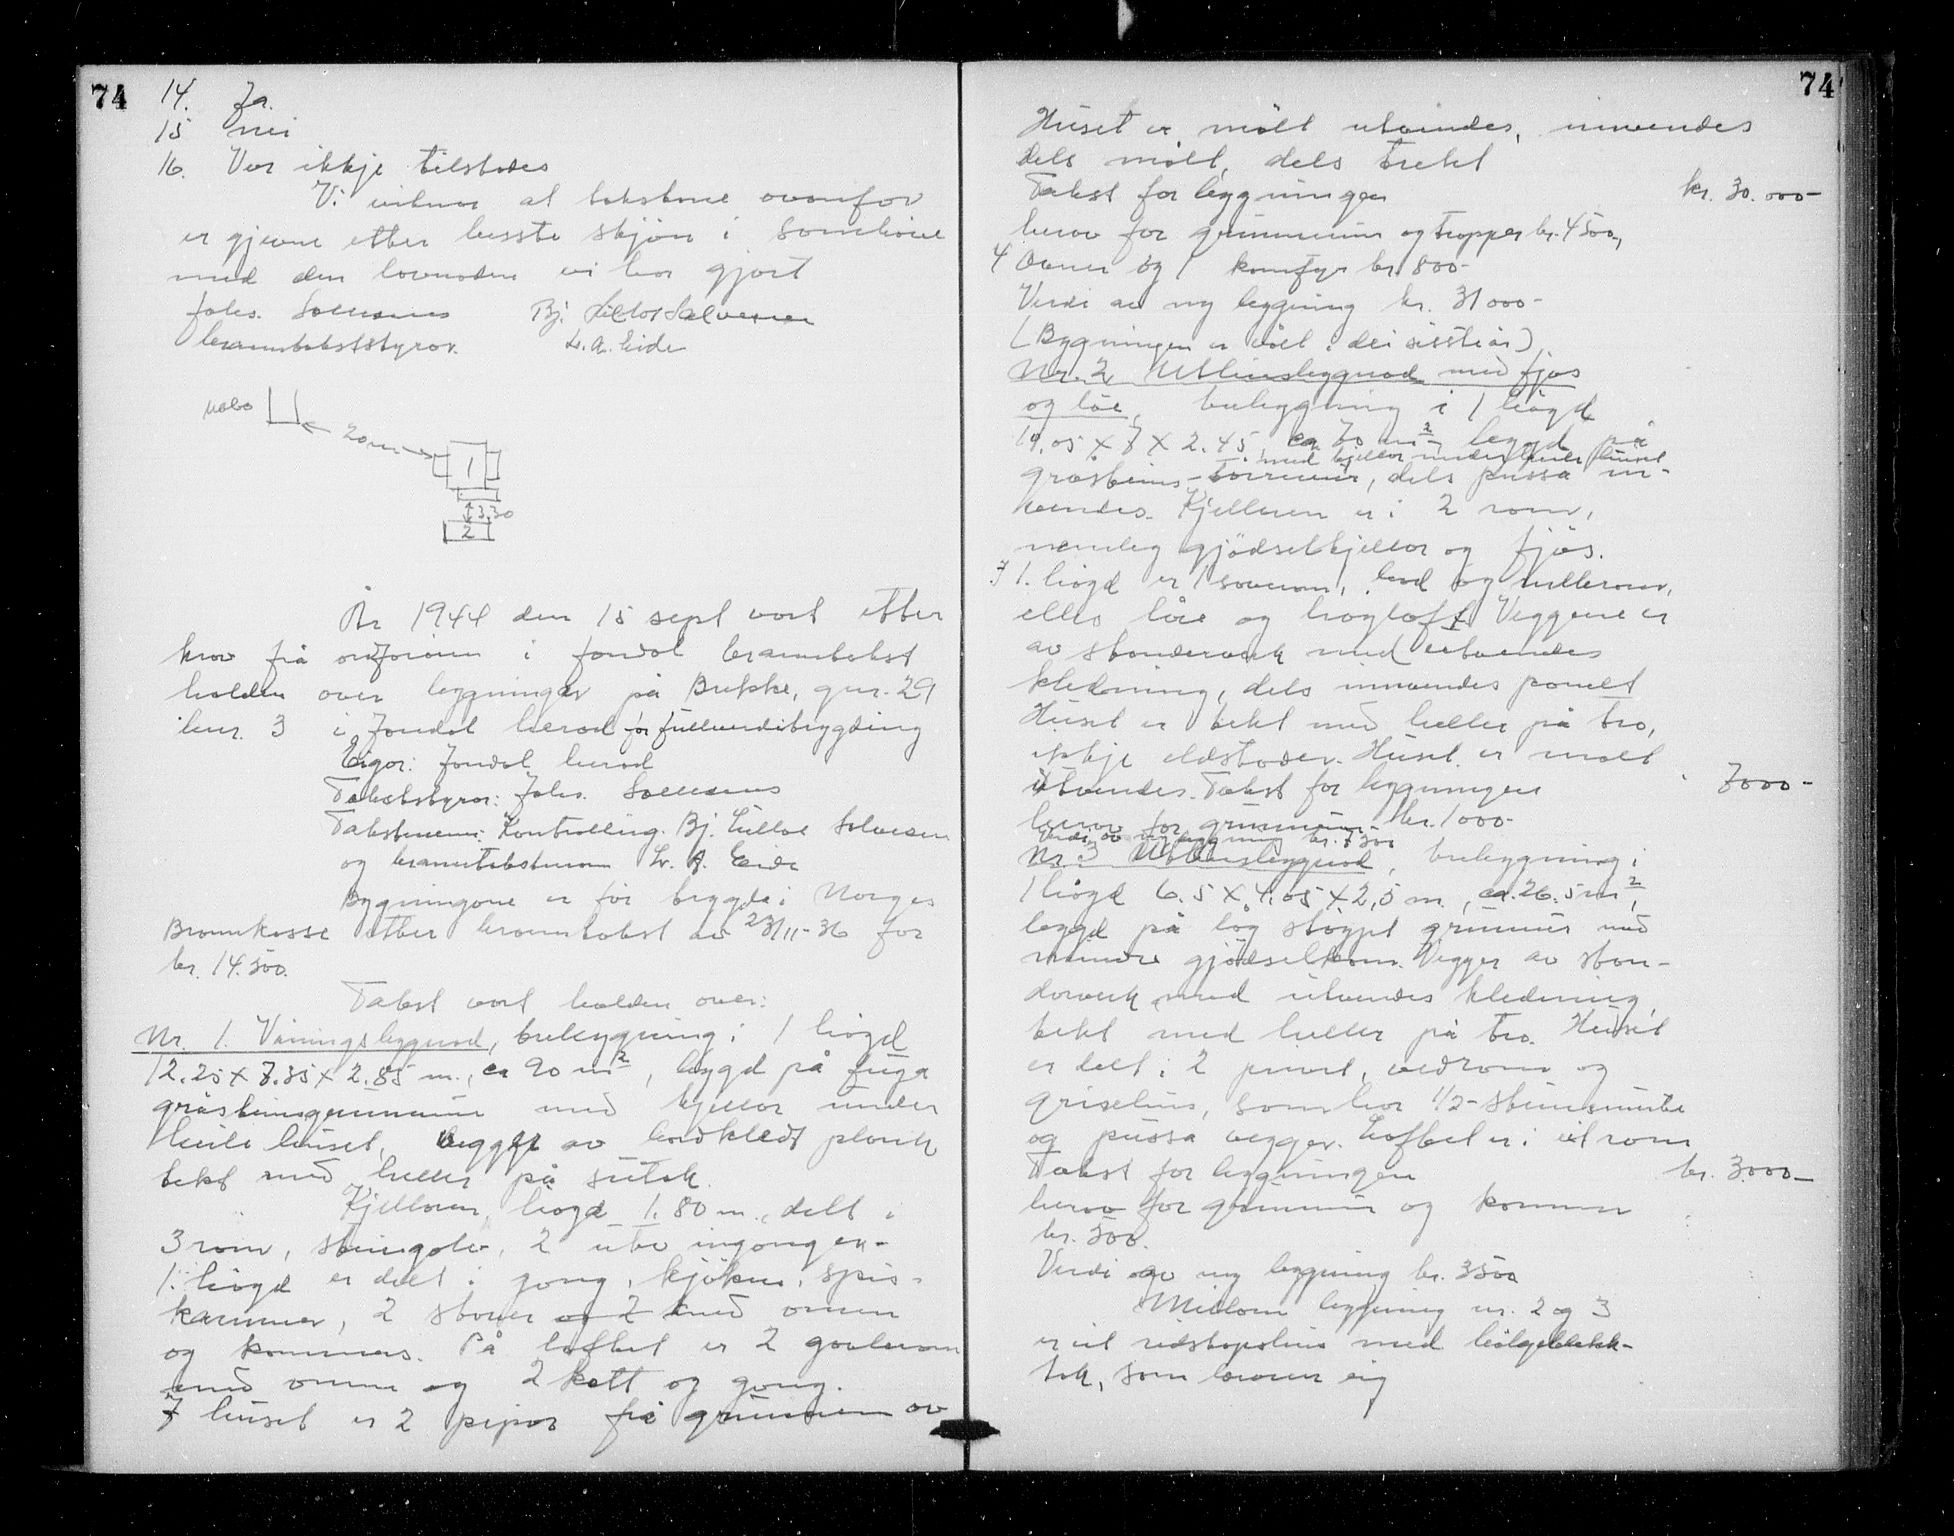 74
14. Ja.
15 nei
16. Var ikkje tilstades
Vi vitnar at takstane ovanfor
er gjevne etter beste skjøn i samhøve
med den lovnaden vi har gjort
Johs. Solesnes Bj. Lilletvet Salvesen
branntakststyrar. L. A. Eide
nabo
20 m
1
3.30
2
År 1944 den 15 sept vart etter
krav frå ordføraren i Jondal branntakst
halden over bygningar på Brekke, gnr. 29
bnr. 3 i Jondal herad for fullverdibygding
Eigar: Jondal herad
Takststyrar: Johs. Solesnes
Takstmenn: Kontrolling. Bj. Salvesen
og branntakstmann L. A. Eide
Bygningane er før trygda i Norges
Brannkasse etter branntakst av 23/11-36 for
kr. 14.500.
Takst vart halden over:
Nr. 1. Våningsbygnad, trebygning i 1 høgd
12.25 x 7.35 x 2.85 m., ca 90 m², bygd på fuga
gråsteinsgrunnmur med kjellar under
heile huset, veggar av bordkledt plank
tekt med heller på sutak.
Kjellaren, høgd 1.80 m., delt i
3 rom, steingolv, 2 utv inngonger.
1. høgd er delt i gong, kjøken, spis-
kammer, 2 stover med omn
og kammers. På loftet er 2 gavlrom
med omn og 2 kott og gong.
I huset er 2 pipor frå grunnen av
74
Huset er målt utvendes, innvendes
dels målt, dels trekt
Takst for bygningen kr. 30.000-
herav for grunnmur og trapper kr. 4500,
4 Omner og 1 komfyr kr. 800-
Verdi av ny bygning kr. 31000-
(Bygningen er vølt i dei siste år)
Nr. 2 Uthusbygnad med fjøs
og løe, trebygning i 1 høgd
10.05 x 7 x 2.45, ca 70 m² bygd på
med kjellar under heile huset
gråsteins-tørrmur, dels pussa inn-
vendes. Kjellaren er i 2 rom,
nemleg gjødselkjellar og fjøs.
I 1. høgd er 1 soverom, bad og rullerom,
elles løe og høgloft. Veggene er
av stenderverk med utvendes
kledning, dels innvendes panelt
Huset er tekt med heller på tro,
ikkje eldstader. Huset er målt
utvendes. Takst for bygningen 7000-
herav for grunnmur kr. 1000-
Verdi av ny bygning kr. 7300
Nr. 3 Uthusbygnad, trebygning i
1 høgd 6.5 x 4.05 x 2,5 m., ca. 26.5 m²,
bygd på låg støypt grunnmur med
mindre gjødselrom. Vegger av sten-
derverk med utvendes kledning,
tekt med heller på tro. Huset
er delt i 2 privet, vedrom og
grisehus, som har 1/2-steinsmura
og pussa vegger. Loftet er i eit rom
Takst for bygningen kr. 3000-
herav for grunnmur og kommer
kr. 500.
Verdi av ny bygning kr. 3500
Millom bygning nr. 2 og 3
er eit reidskapshus med bølgeblekk-
tak, som høver eig